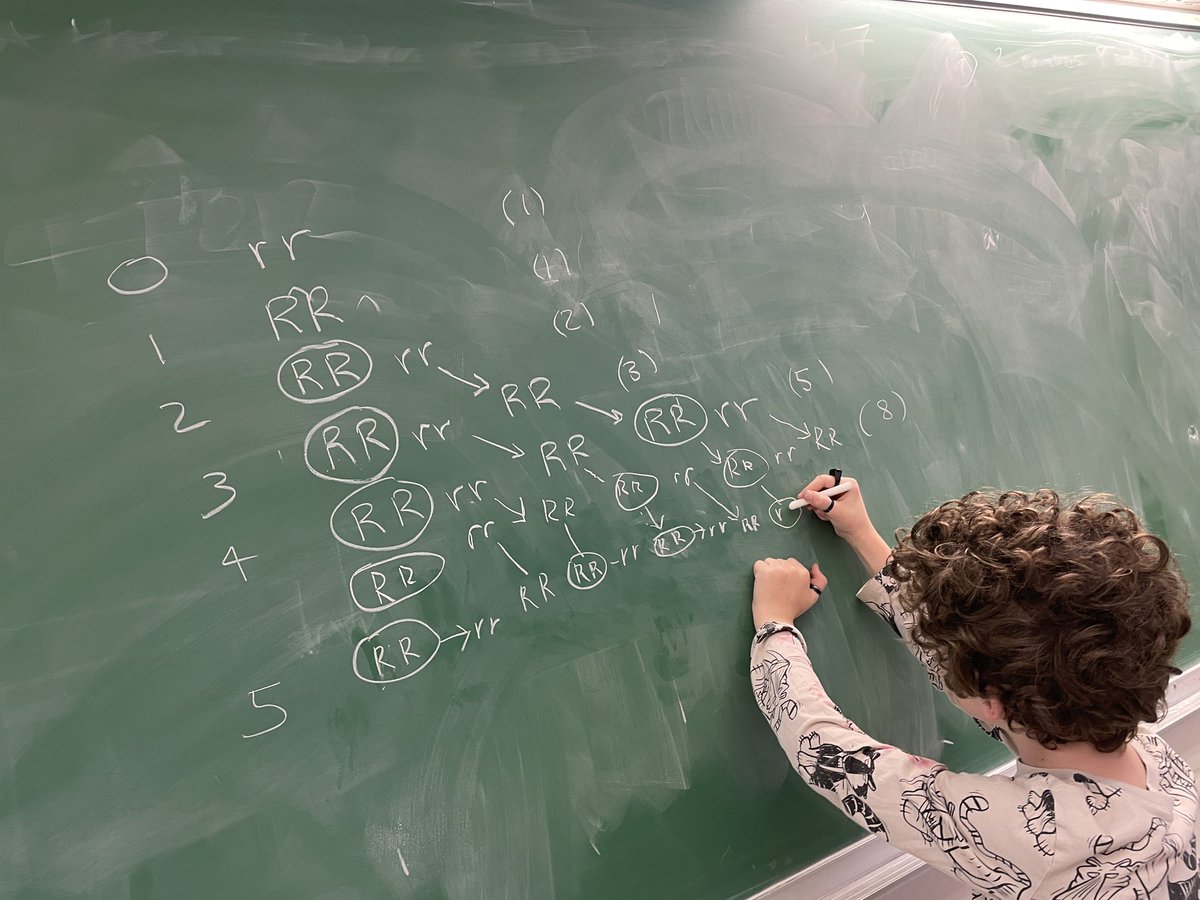 0 rr (1)
1 RR (1)
2 RR rr (2)
3 RR rr RR (3)
4 RR rr RR RR rr (5)
RR rr RR RR rr RR rr RR (8)
5 RR rr RR RR rr RR rr RR r